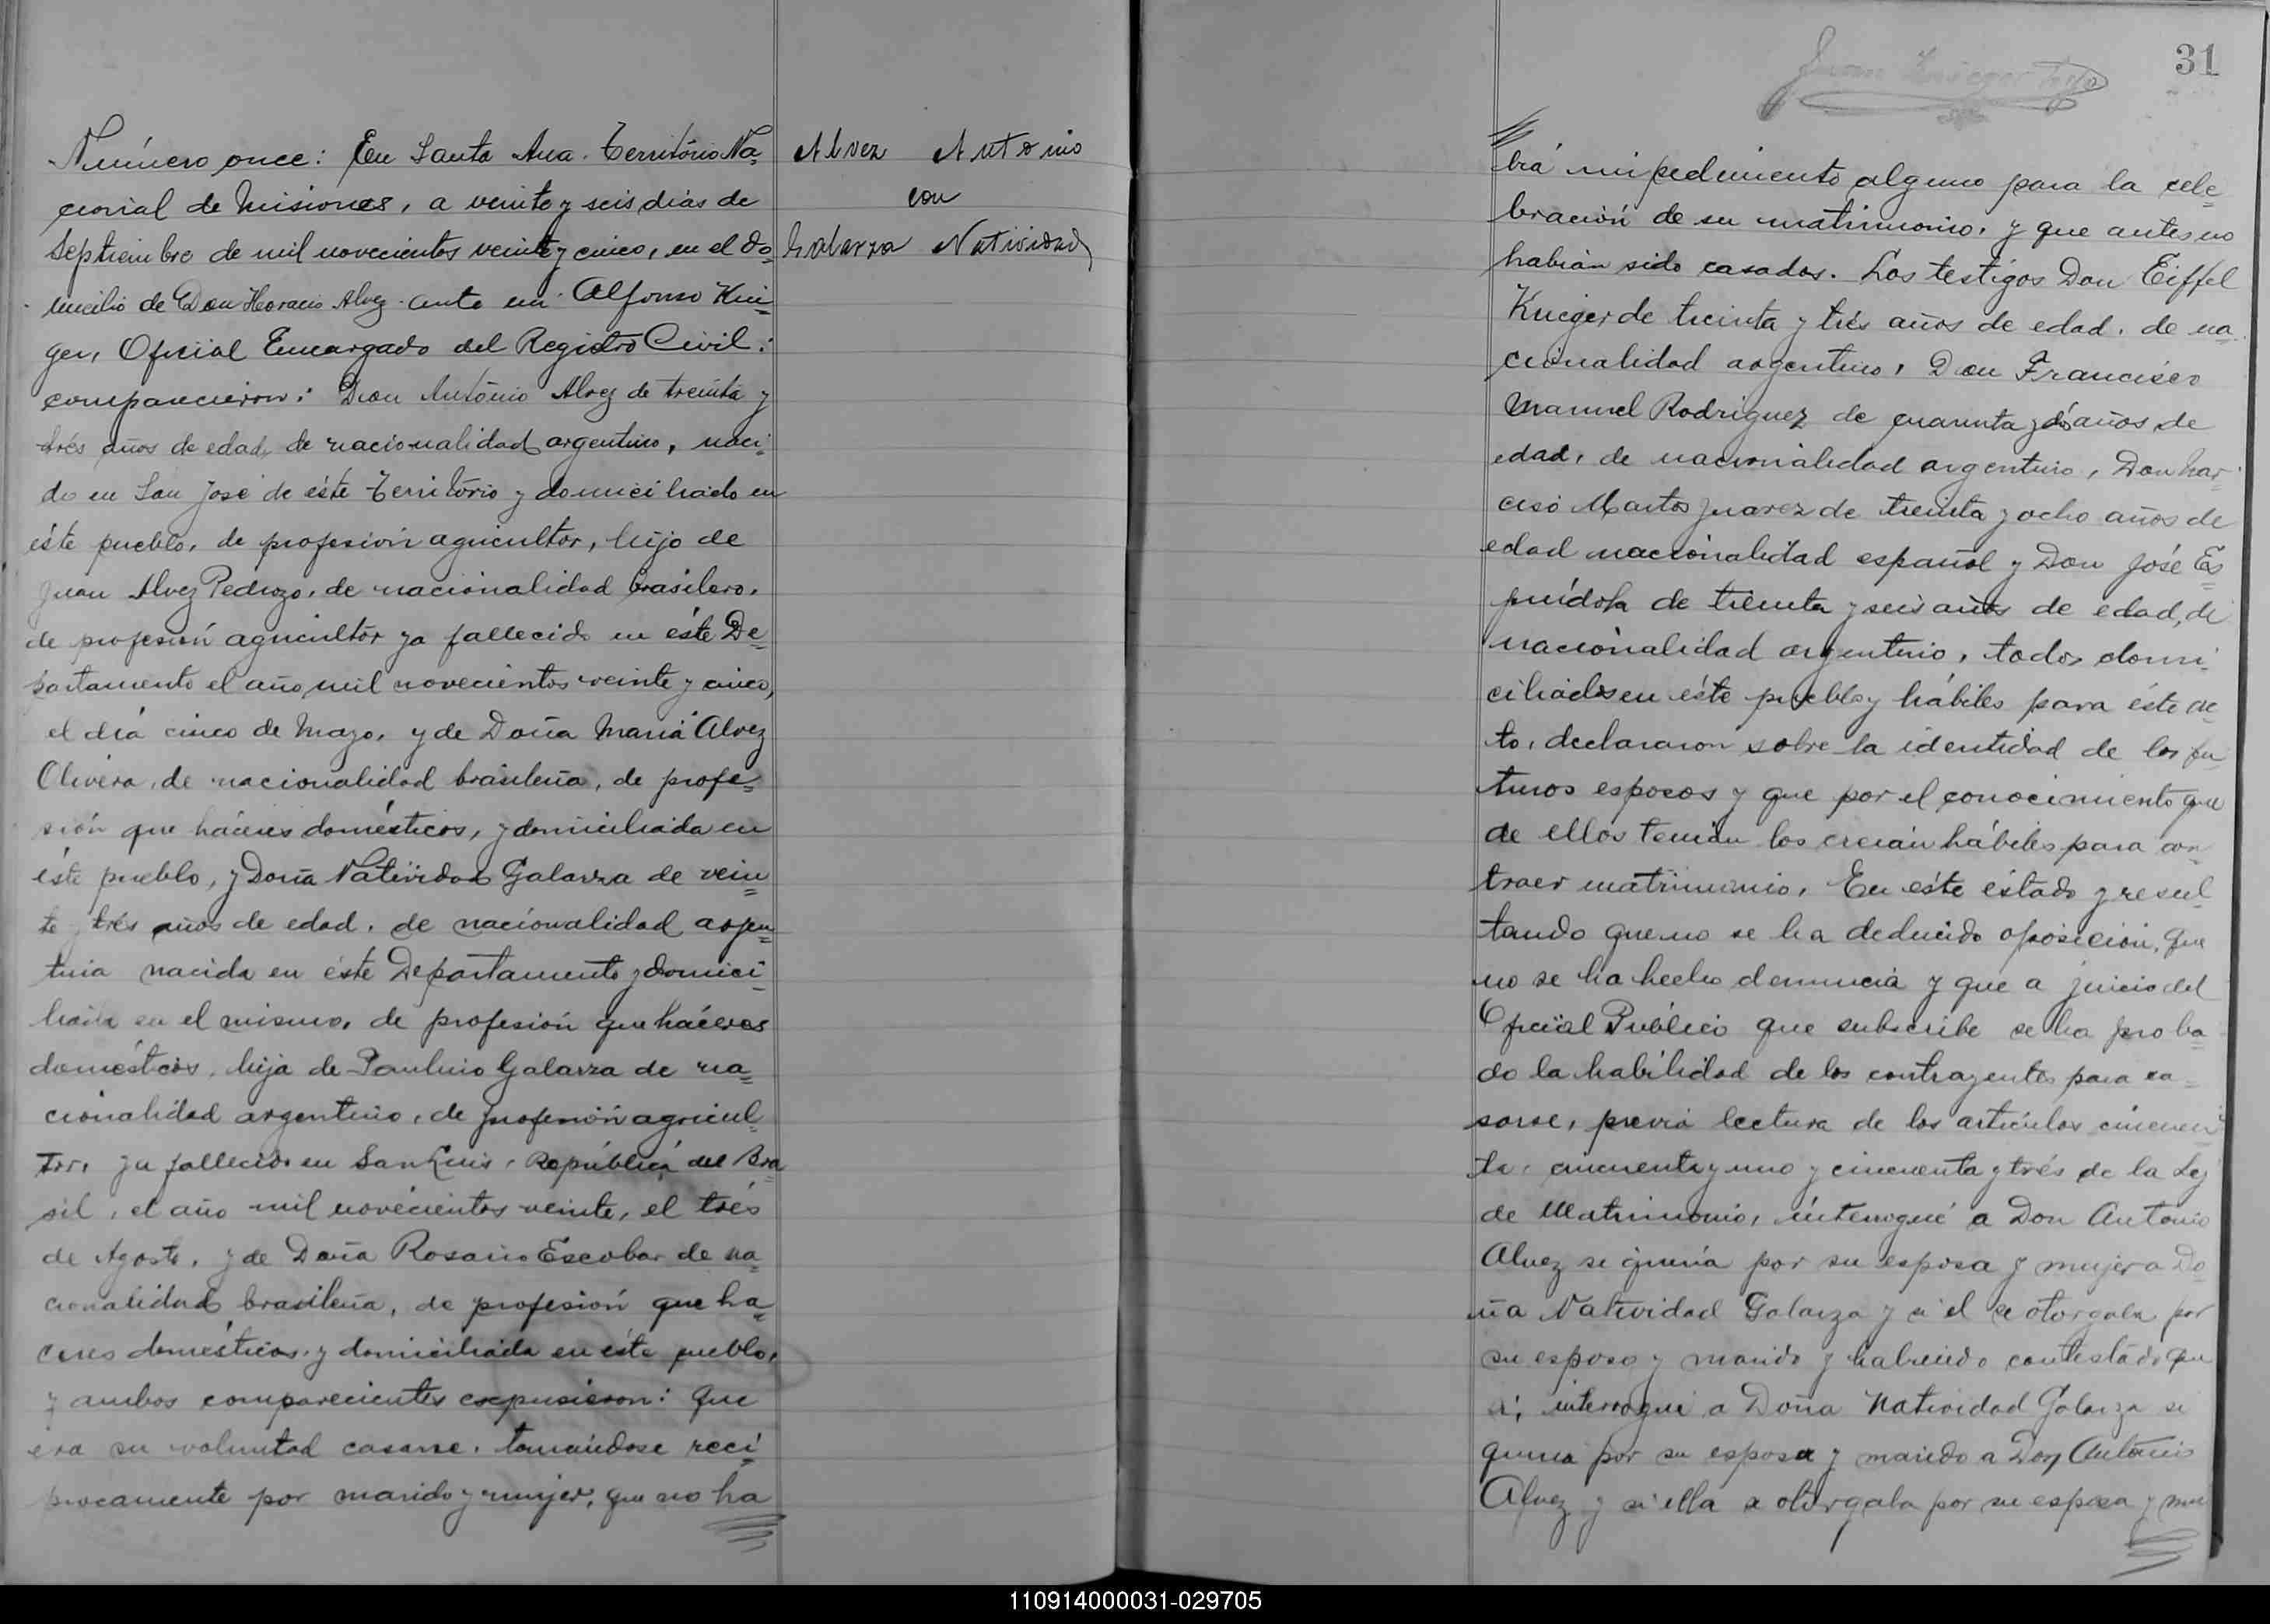 Número once: En Santa Ana. Território Na=
cional de Misiones, a veinte y seis dias de
Septiembre de mil novecientos veinte y cinco, en el do=
micilio de Don Horacio Alvez. ante mi Alfonso Krie=
ger, Oficial Encargado del Registro Civil:
comparecieron: Don António Alvez de treinta y
trés años de edad, de nacionalidad argentino, naci=
do en San José de éste Território y domiciliado en
éste pueblo, de profesión agricultor, hijo de
Juan Alvez Pedrozo, de nacionalidad brasilero,
de profesión agricultor ya fallecido en éste De=
partamento el año mil novecientos veinte y cinco,
el día cinco de Mayo, y de Doña María Alvez
Olivera, de nacionalidad brasileña, de profe=
sión que háceres domésticos, y domiciliada en
éste pueblo, y Doña Natividad Galarza de vein=
te y trés años de edad, de nacionalidad argen=
tina nacida en éste Departamento y domici=
liada en el mismo, de profesión que háceres
domésticos, hija de Paulino Galarza de na=
cionalidad argentino, de profesión agricul=
tor, ya fallecido en San Luis, República del Bra=
sil, el año mil novecientos veinte, el trés
de Agosto, y de Doña Rosario Escobar de na=
cionalidad brasileña, de profesión que ha=
ceres domésticos y domiciliada en éste pueblo,
y ambos comparecientes expusieron: Que
era su voluntad casarse, tomándose reci=
procamente por marido y mujer, que no ha
Alvez Antonio
con
Galarza Natividad
31
bía impedimento alguno para la cele=
bración de su matrimonio, y que antes no
habían sido casados. Los testigos Don Eiffel
Krieger de treinta y trés años de edad, de na=
cionalidad argentino, Don Francisco
Manuel Rodriguez de cuarenta y dós años de
edad, de nacionalidad argentino, Don Nar=
ciso Martos Juarez de treinta y ocho años de
edad nacionalidad español y Don José Es=
píndola de treinta y seis años de edad, de
nacionalidad argentino, todos domi=
ciliados en éste pueblo y hábiles para éste ac=
to, declararon sobre la identidad de los fu=
turos esposos y que por el conocimiento que
de ellos tenían los creían hábiles para con=
traer matrimonio. En éste estado y resul=
tando que no se ha deducido oposición, que
no se ha hecho denuncia y que a juicio del
Oficial Público que subscribe se ha proba=
do la habilidad de los contrayentes para ca=
sarse, previa lectura de los artículos cincuen=
ta, cincuenta y uno y cincuenta y trés de la Ley
de Matrimonio, interrogué a Don Antonio
Alvez si quería por su esposa y mujer a Do=
ña Natividad Galarza y si el se otorgaba por
su esposo y marido y habiendo contestado que
si, interrogué a Doña Natividad Galarza si
quería por su esposo y marido a Don António
Alvez y si ella se otorgaba por su esposa y mu
110914000031-029705